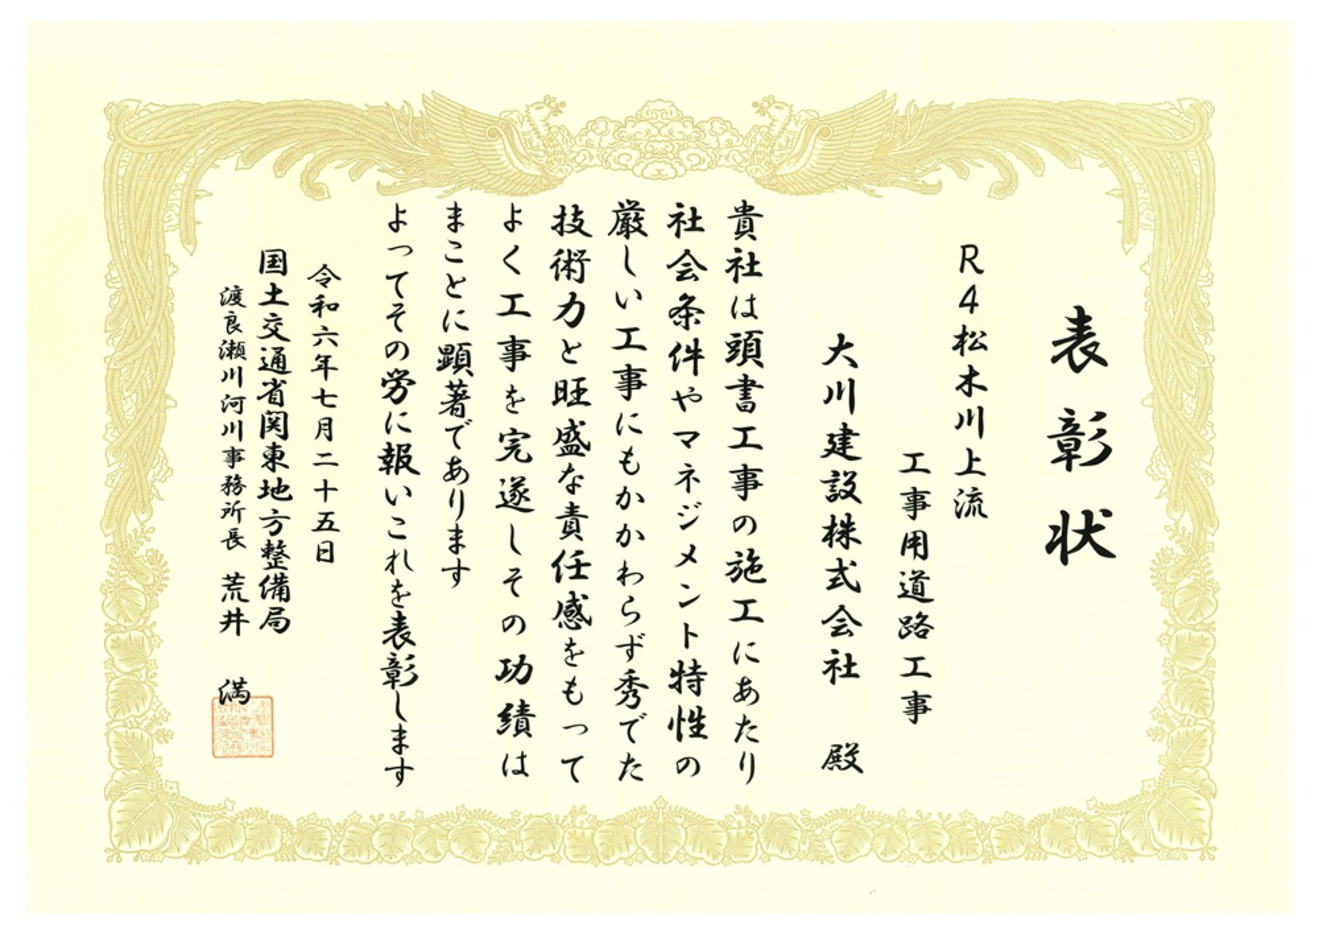 表彰状
R4松木川上流
工事用道路工事
大川建設株式会社 殿
貴社は頭書工事の施工にあたり
社会条件やマネジメント特性の
厳しい工事にもかかわらず秀でた
技術力と旺盛な責任感をもって
よく工事を完遂しその功績は
まことに顕著であります
よってその労に報いこれを表彰します
令和六年七月二十五日
国土交通省関東地方整備局
渡良瀬川河川事務所長 荒井 満